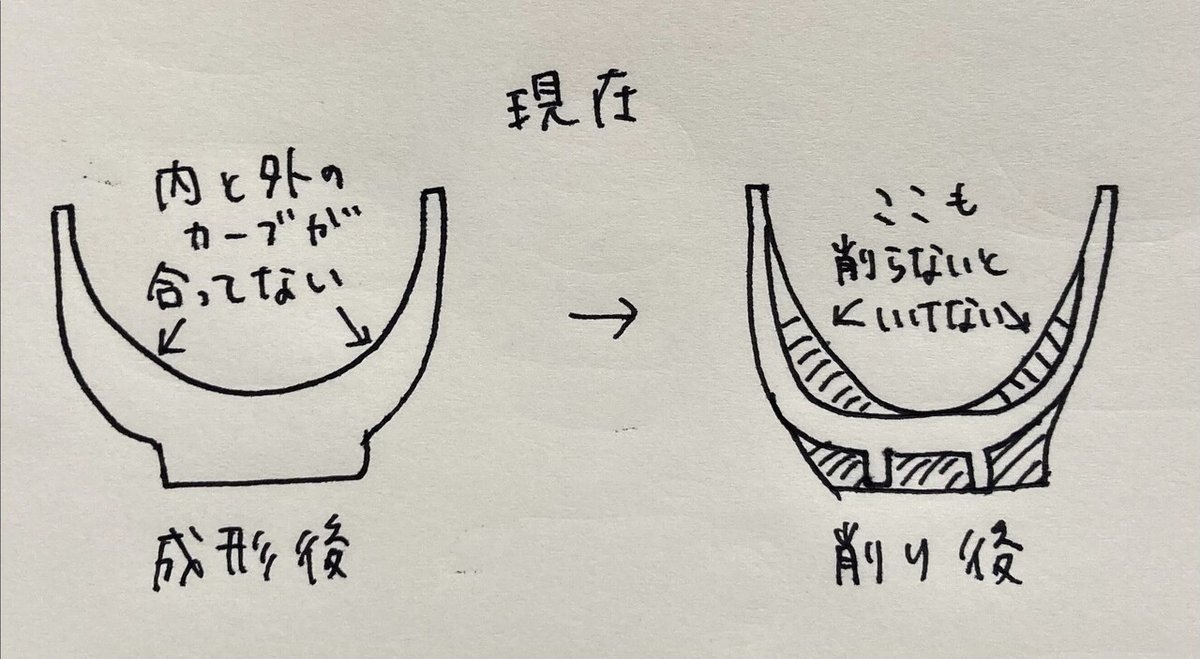 現在
内と外の
カーブが
合ってない
成形後
→
ここも
削らないと
いけない
削り後